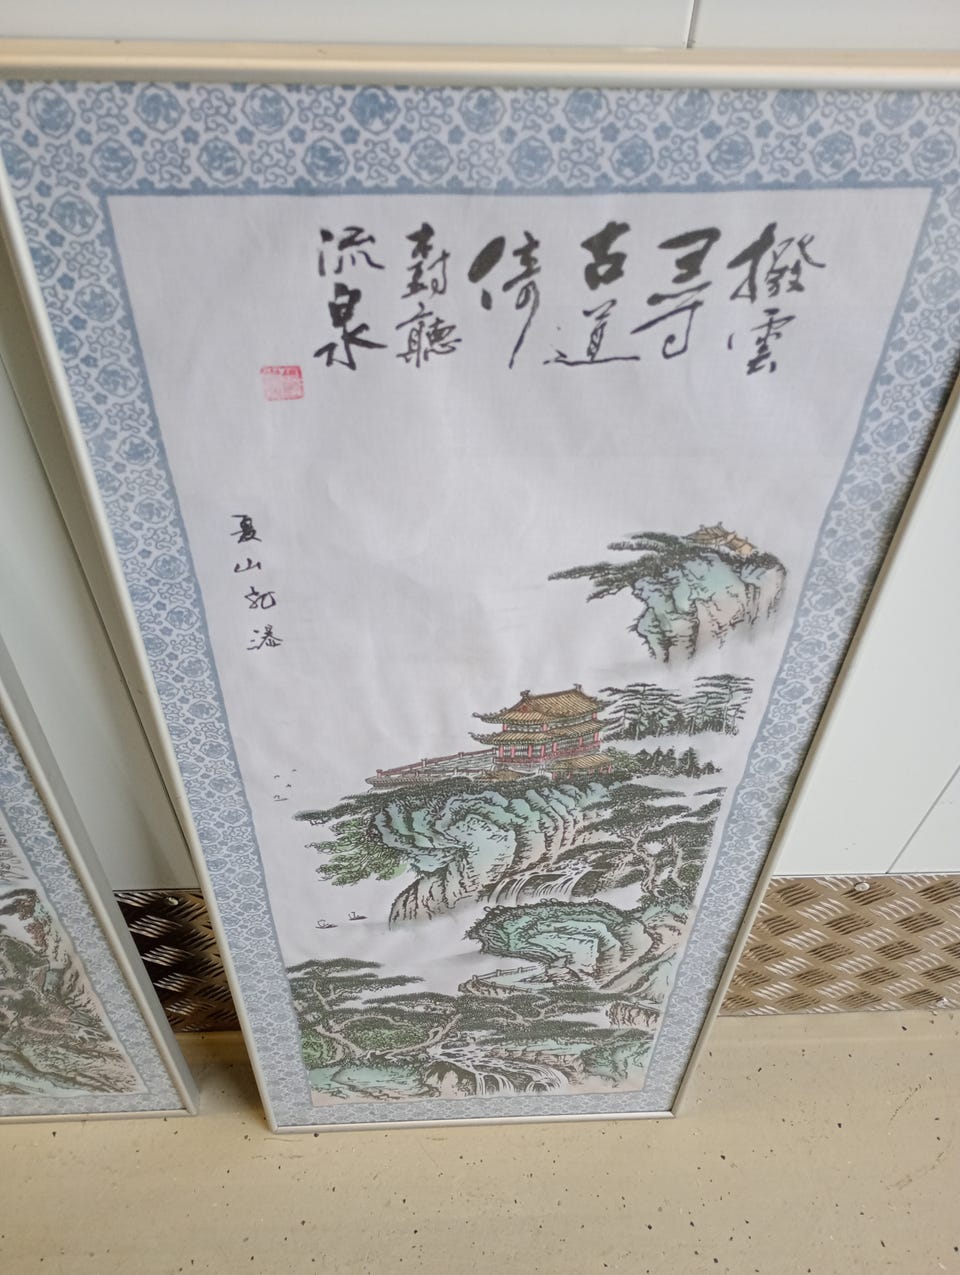 撥雲
尋
古道
倚
樹聽
流泉
夏山飛瀑